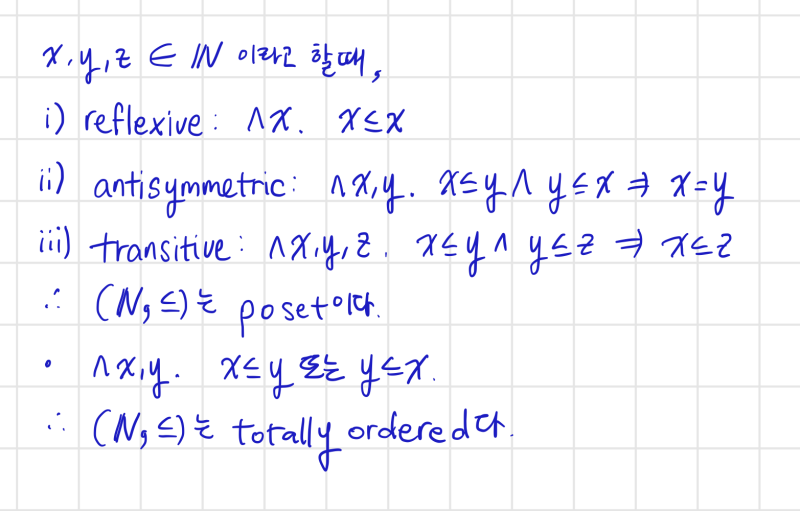 x, y, z ∈ ℕ 이라고 할때,
i) reflexive: ∧x. x≤x
ii) antisymmetric: ∧x,y. x≤y ∧ y≤x ⇒ x=y
iii) transitive: ∧x,y,z. x≤y ∧ y≤z ⇒ x≤z
∴ (ℕ, ≤)는 poset이다.
• ∧x,y. x≤y 또는 y≤x.
∴ (ℕ, ≤)는 totally ordered다.